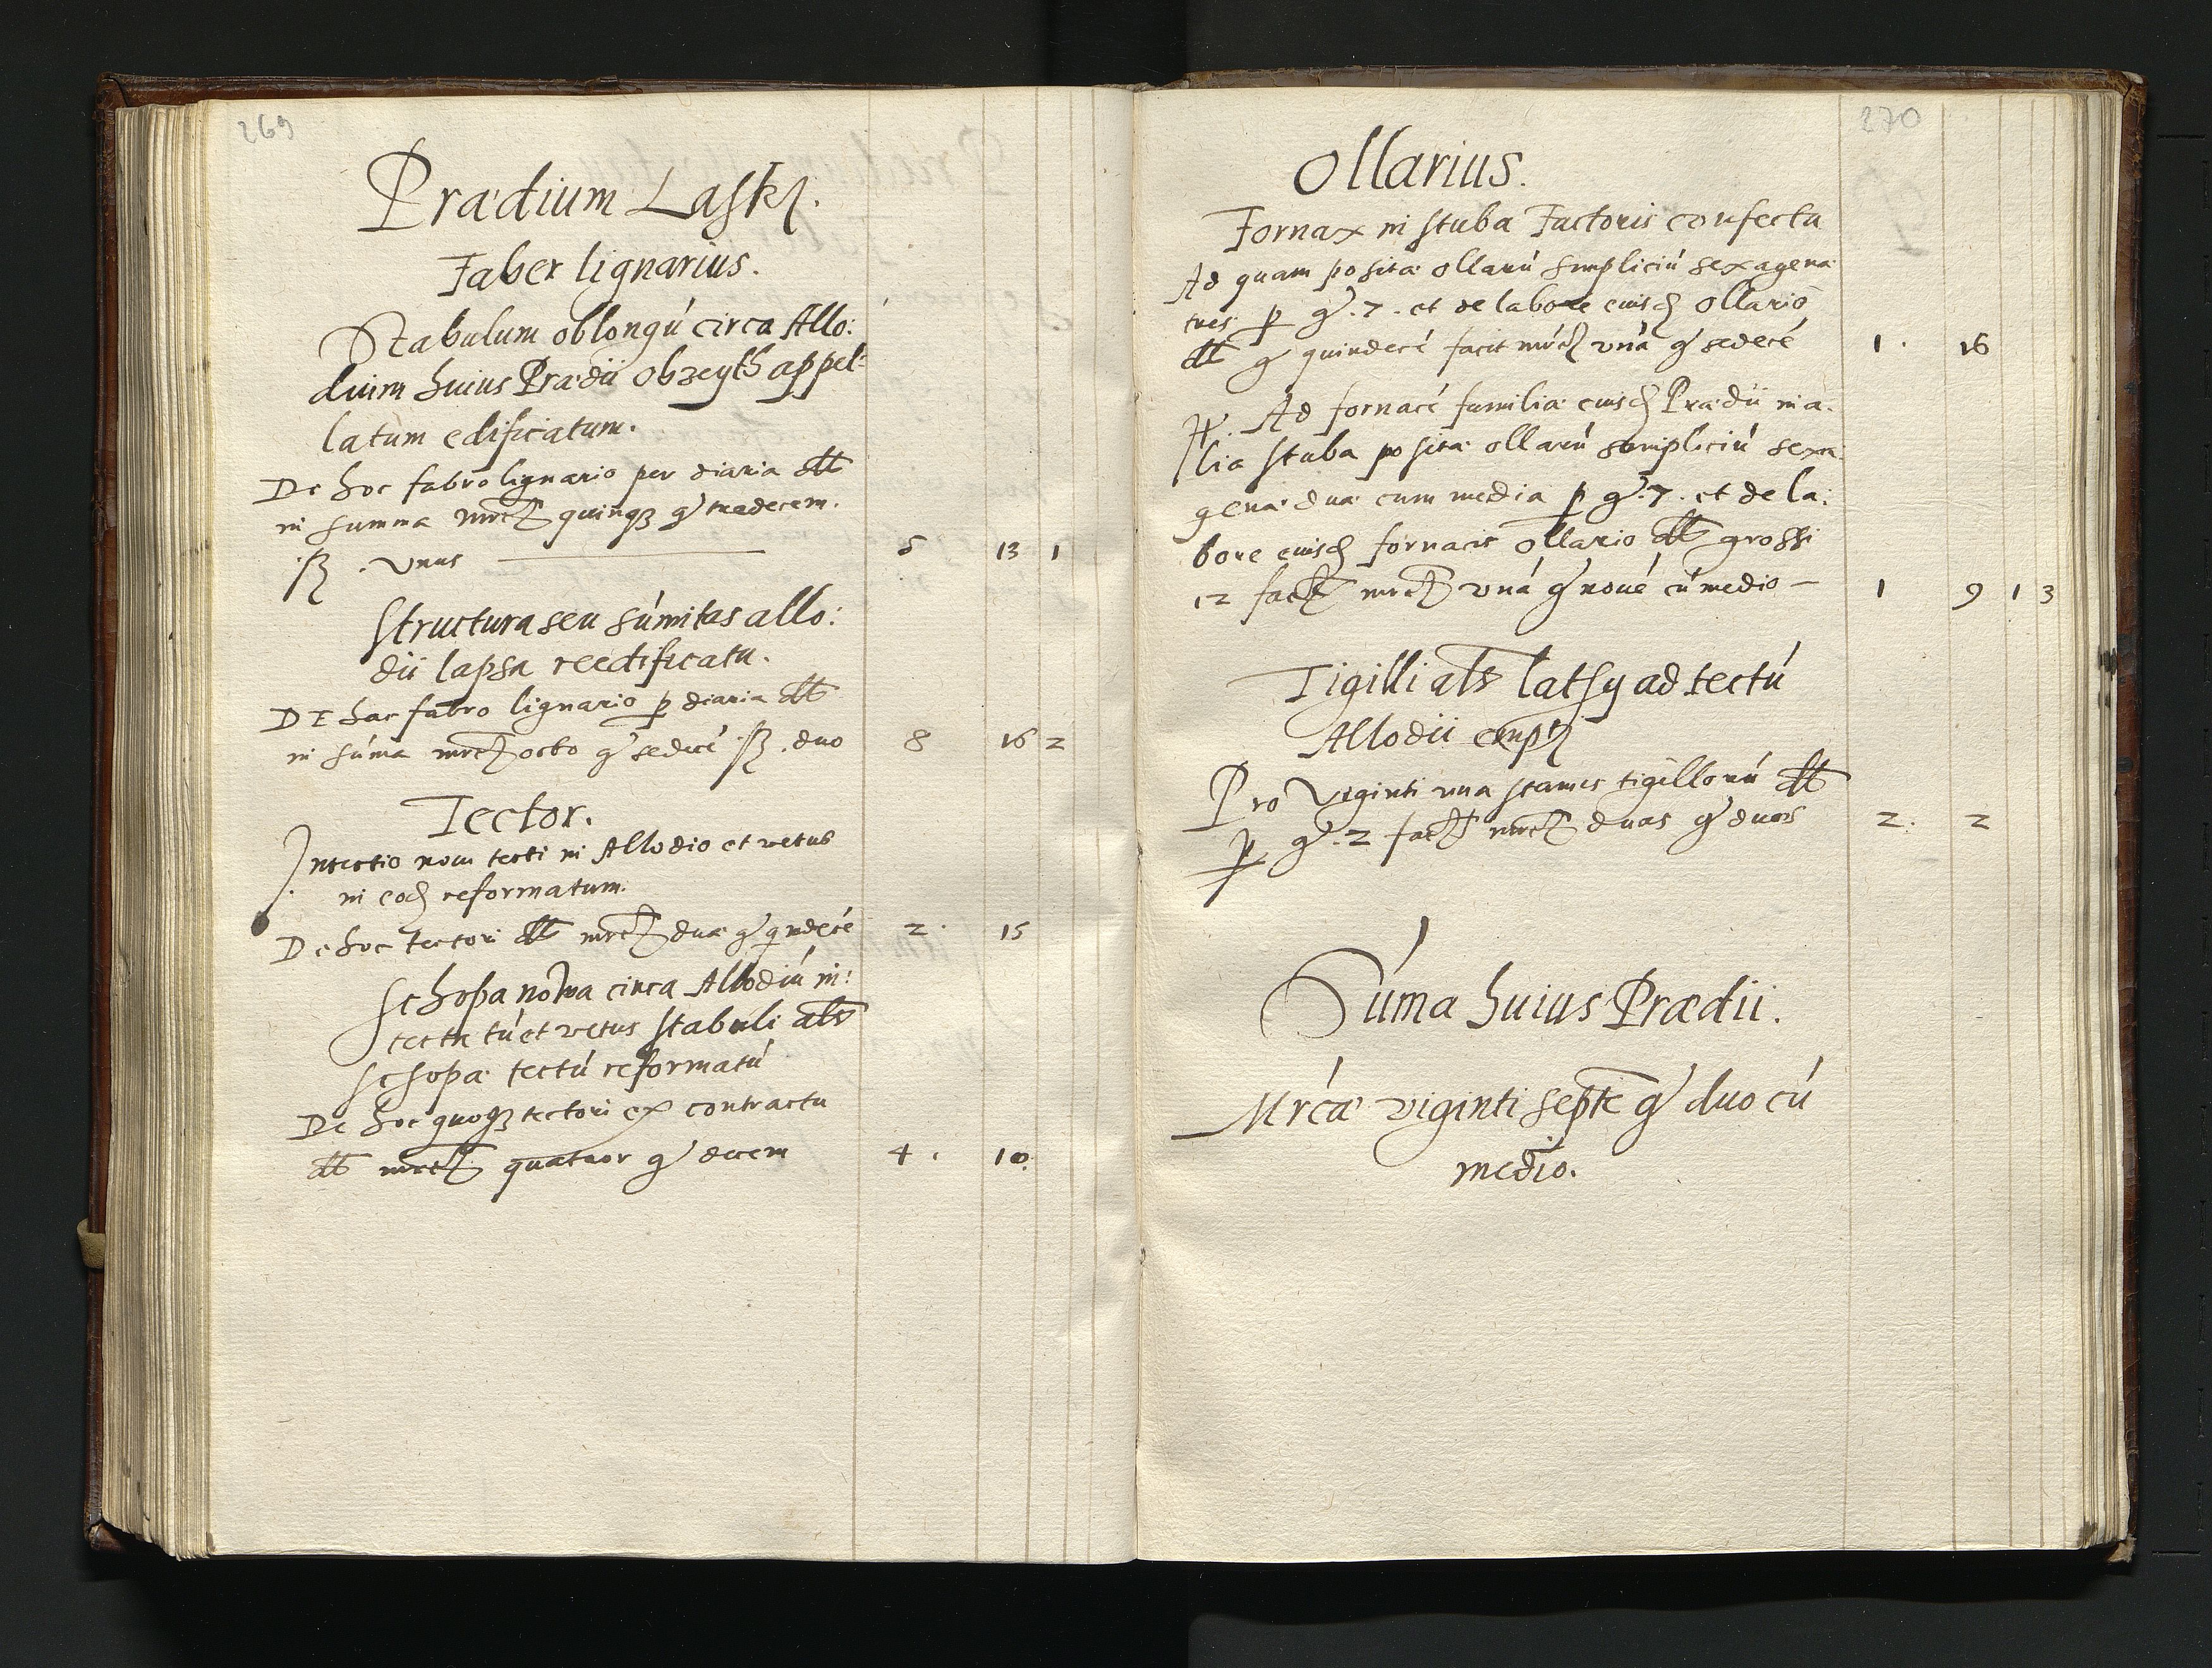 269
Prædium Lask.
Faber lignarius.
Stabulum oblongú circa Allo:
dium huius Prædii obzeyth appel:
latum edificatum.
De hoc fabro lignario per diaria dtt
in summa mrc quinqz g tredecem.
ſz. vnus — 5 13 1
Structura seu súmitas allo:
dii lapsa reedificata.
DE hac fabro lignario p diaria dtt
in súma mrc octo g sedecé ſz. duo 8 16 2
Tector.
Intectio noui tecti in Allodio et vetus
in eod reformatum.
De hoc tectori dtt mrc duæ g qindecé 2. 15
Schopa nowa circa Allodiú in:
tecta tú et vetus stabuli als
schopæ tectú reformatú
De hoc quoqz tectori ex contractu
dtt mrc quatuor g decem 4. 10.
270
Ollarius.
Fornax in stuba Factoris confecta
Ad quam positæ ollarú simpliciú sexagenæ
tres. p g. 7. et de labore eiusd ollario
dtt g quindecé facit mrc vná g sedecé 1. 16
It. Ad fornacé familiæ eiusd Prædii in a:
lia stuba positæ ollarú simpliciú sexa:
genæ duæ cum media p g. 7. et de la:
bore eiusd fornacis ollario dtt grossi
12 fac mrc vná g noué cú medio — 1 9 1 3
Tigilli als latsy ad tectú
Allodii empt
Pro viginti una stames tigillorú dtt
p g. 2 fac mrc duas g duos 2. 2
Súma huius Prædii.
Mrcæ viginti septe g duo cú
medio.